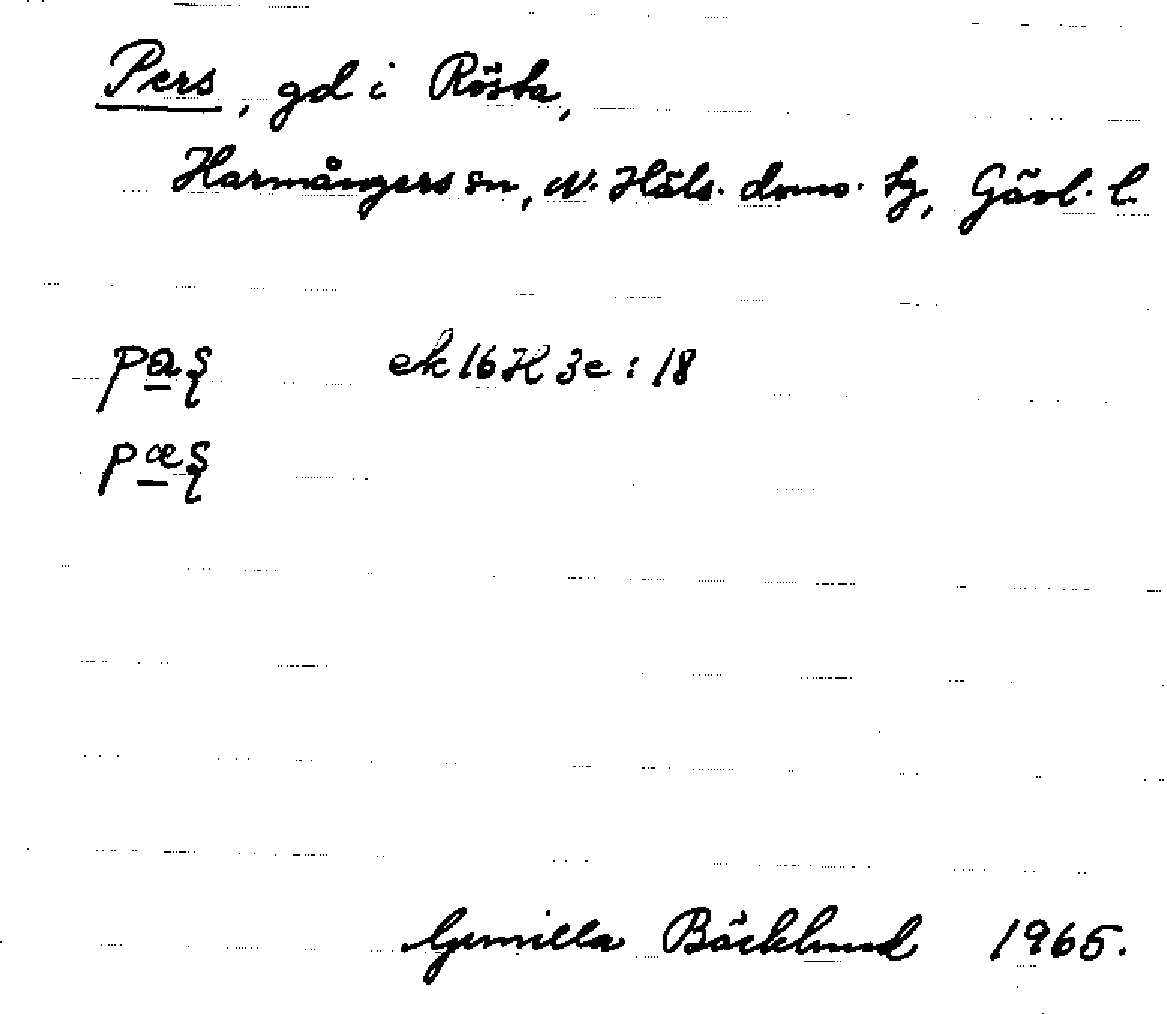 Pers, gd i Rösta,
Harmångers sn, N. Häls. doms. tg, Gävl. l.
pa̲ʂ ek 16 H 3e : 18
pæ̲ʂ
Gunilla Bäcklund 1965.